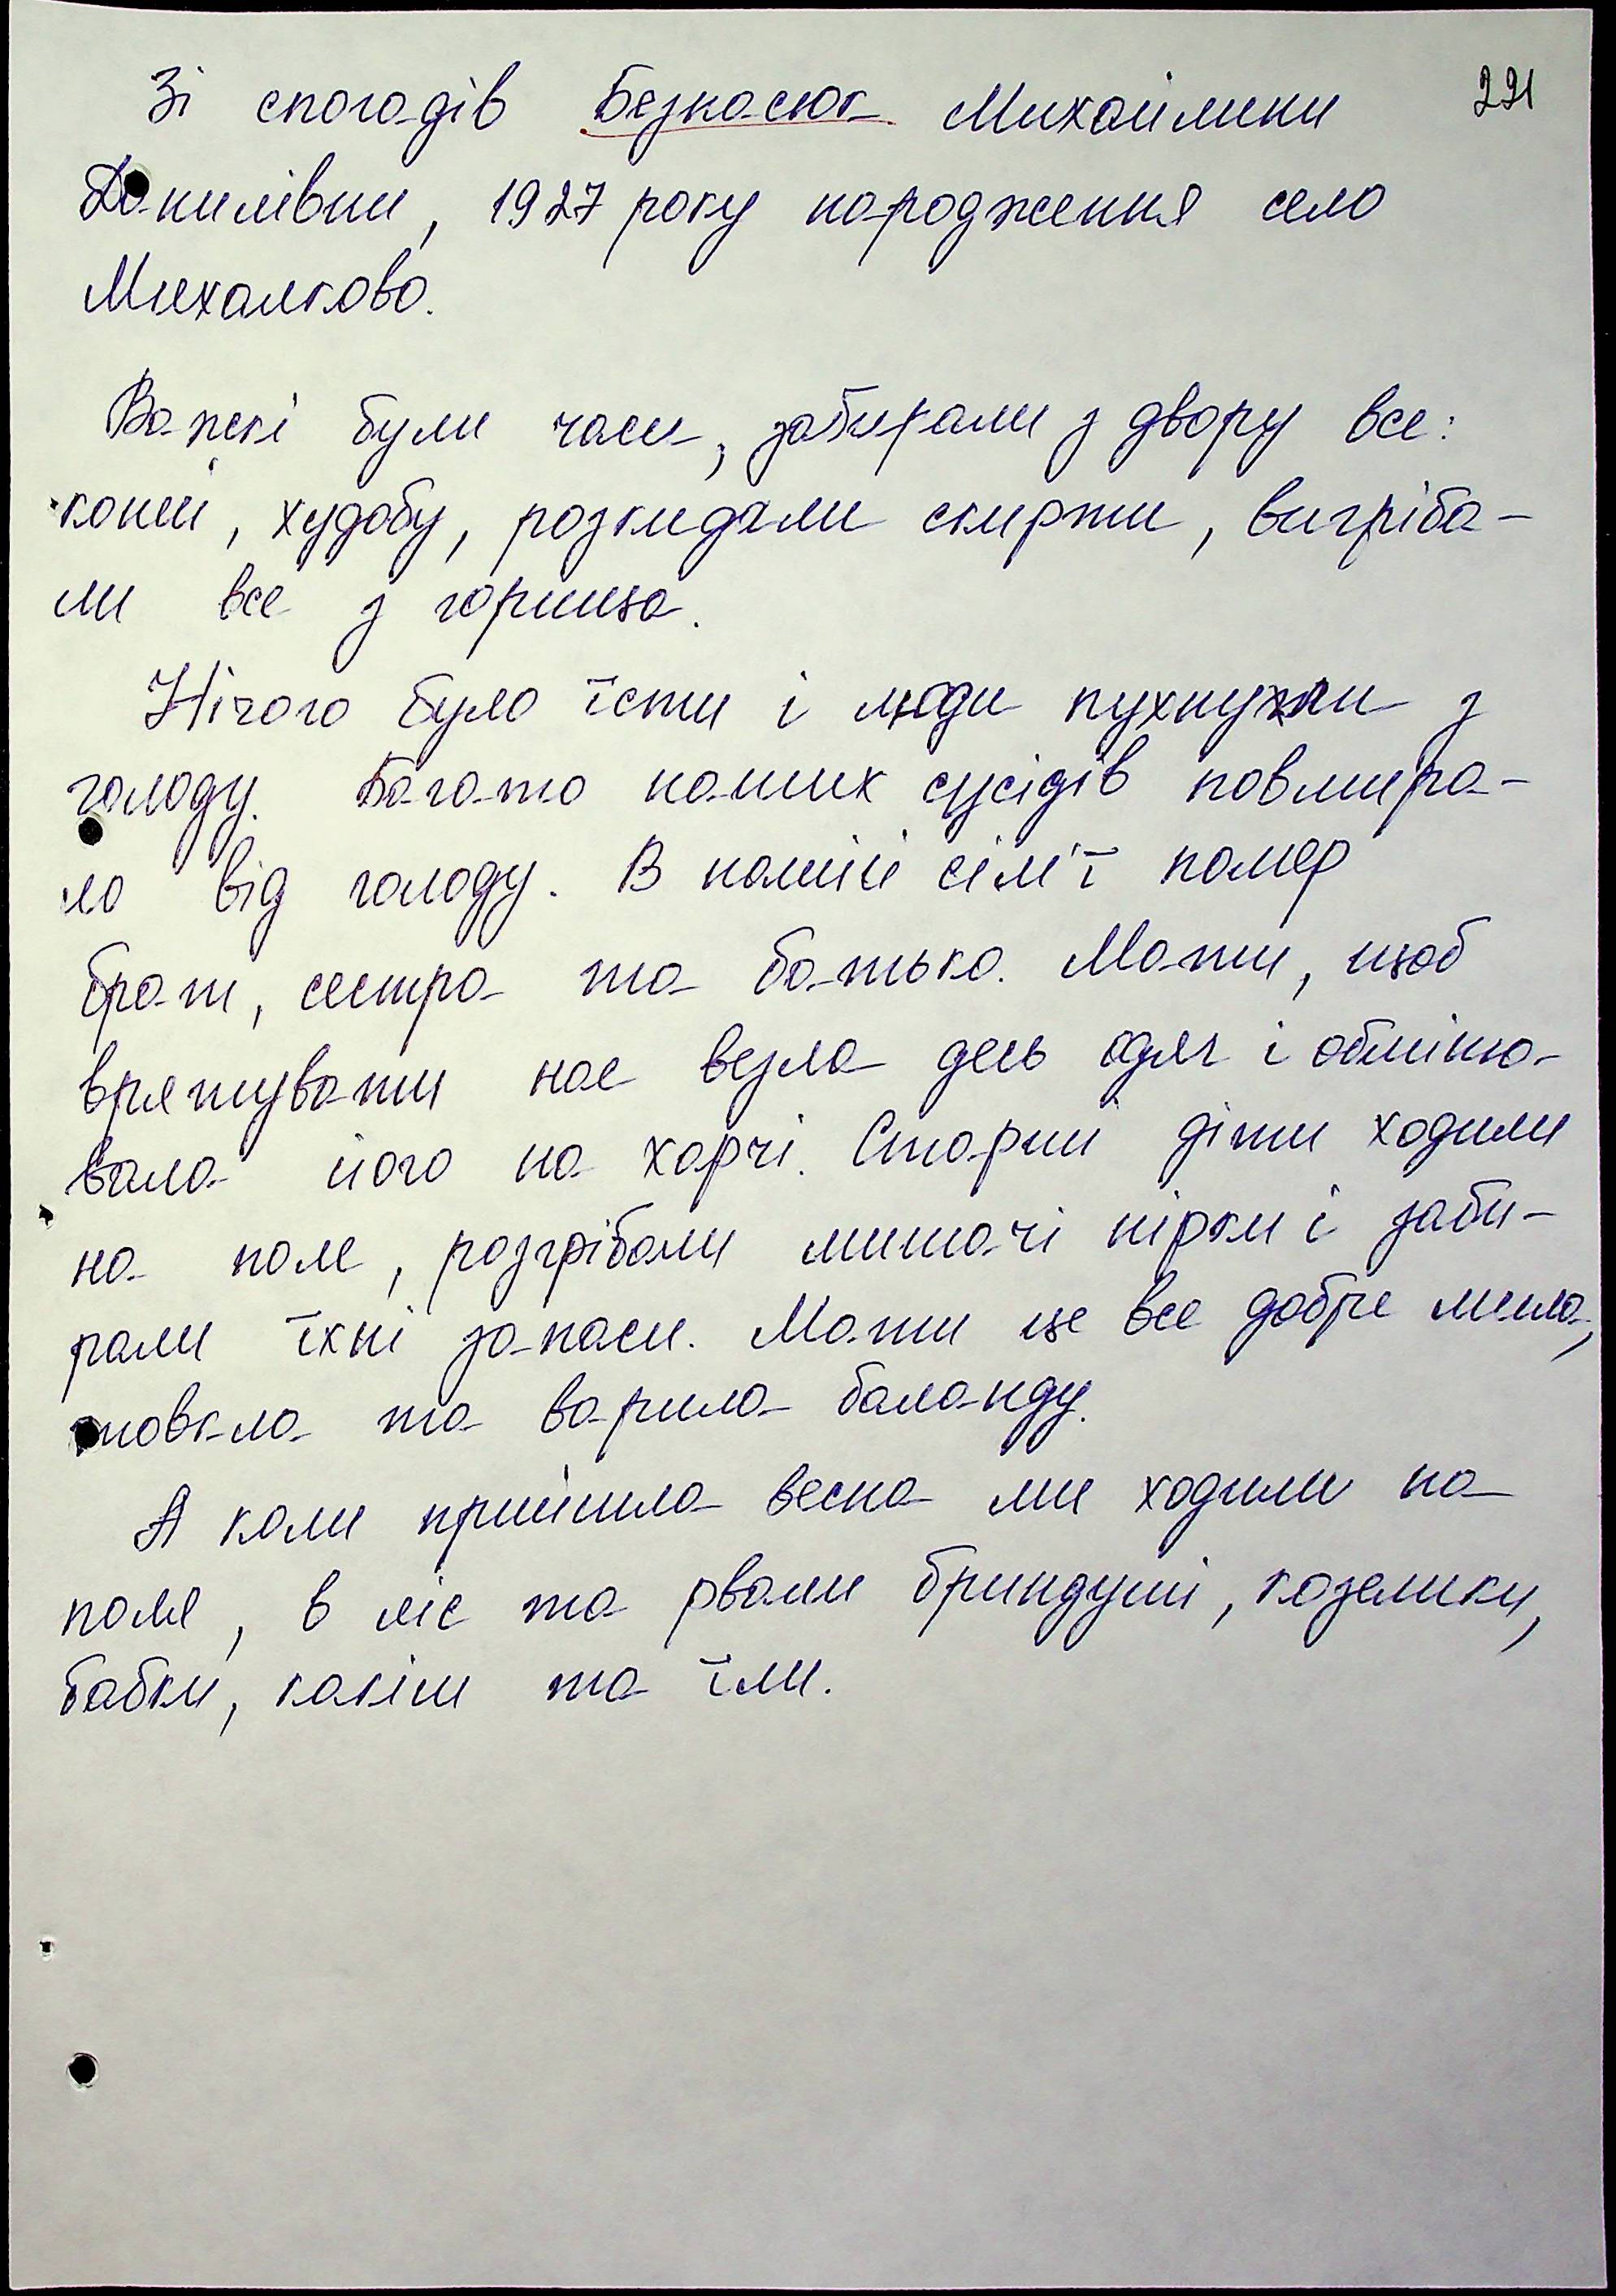 221
Зі спогадів Безкасюк Михайлини
Данилівни, 1927 року народження село
Михалково.
Важкі були часи, забирали з двору все:
коней, худобу, розкидали скирти, вигріба-
ли все з горища.
Нічого було їсти і люди пухнули з
голоду. Багато наших сусідів повмира-
ло від голоду. В нашій сім'ї помер
брат, сестра та батько. Мати, щоб
врятувати нас везла десь одяг і обміню-
вала його на харчі. Старші діти ходили
на поле, розгрібали мишачі нірки і заби-
рали їхні запаси. Мати це все добре мила,
товкла та варила баланду.
А коли прийшла весна ми ходили на
поля, в ліс та рвали бриндуші, козелики,
бабки, какіш та їли.